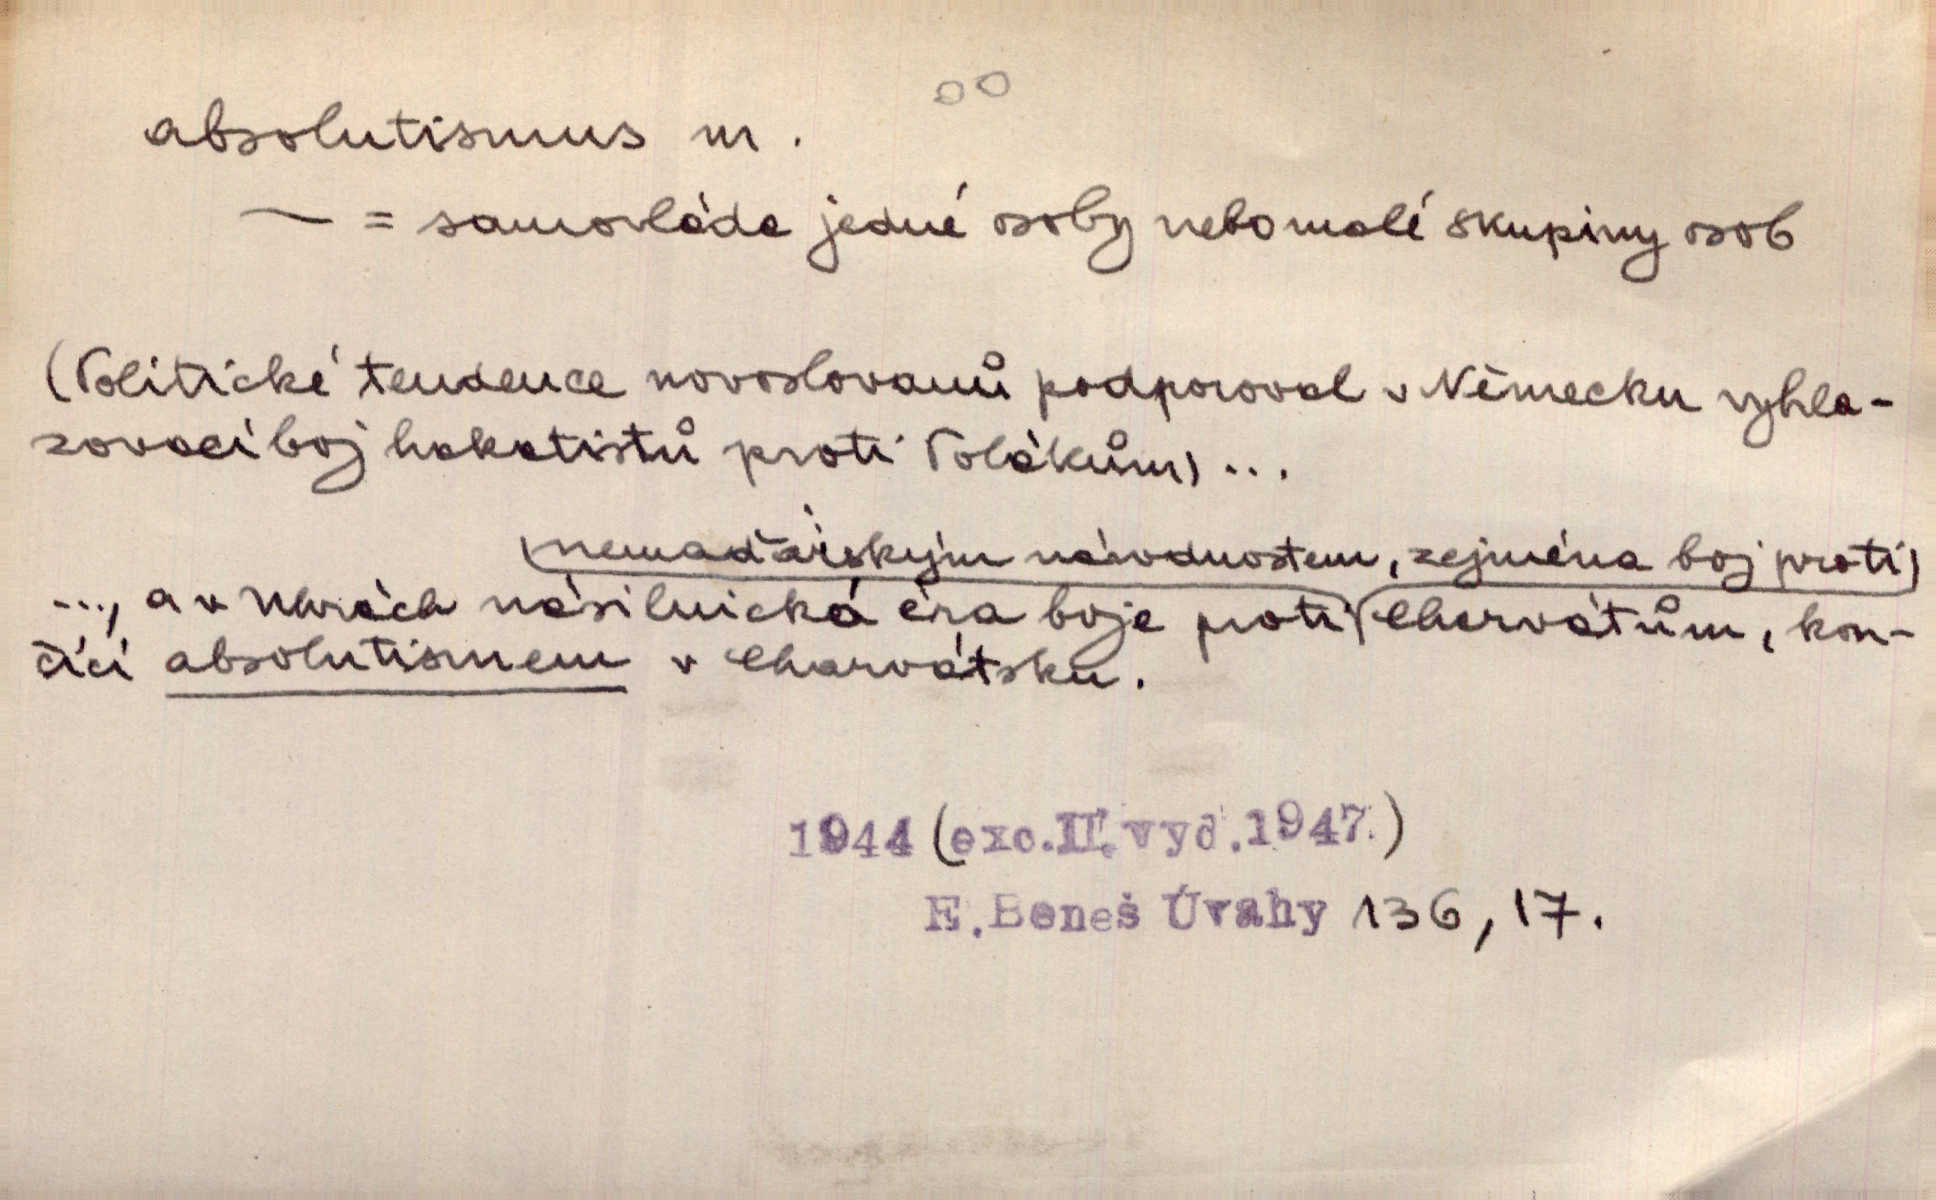 absolutismus m.
~ = samovláda jedné osoby nebo malé skupiny osob
(Politické tendence novoslovanů podporoval v Německu vyhla-
zovací boj hakatistů proti Polákům) ...
nemaďarským národnostem, zejména boj proti
..., a v Uhrách násilnická éra boje proti Charvátům, kon-
čící absolutismem v Charvátsku.
1944 (exc.II.vyd.1947.)
E.Beneš Úvahy 136, 17.